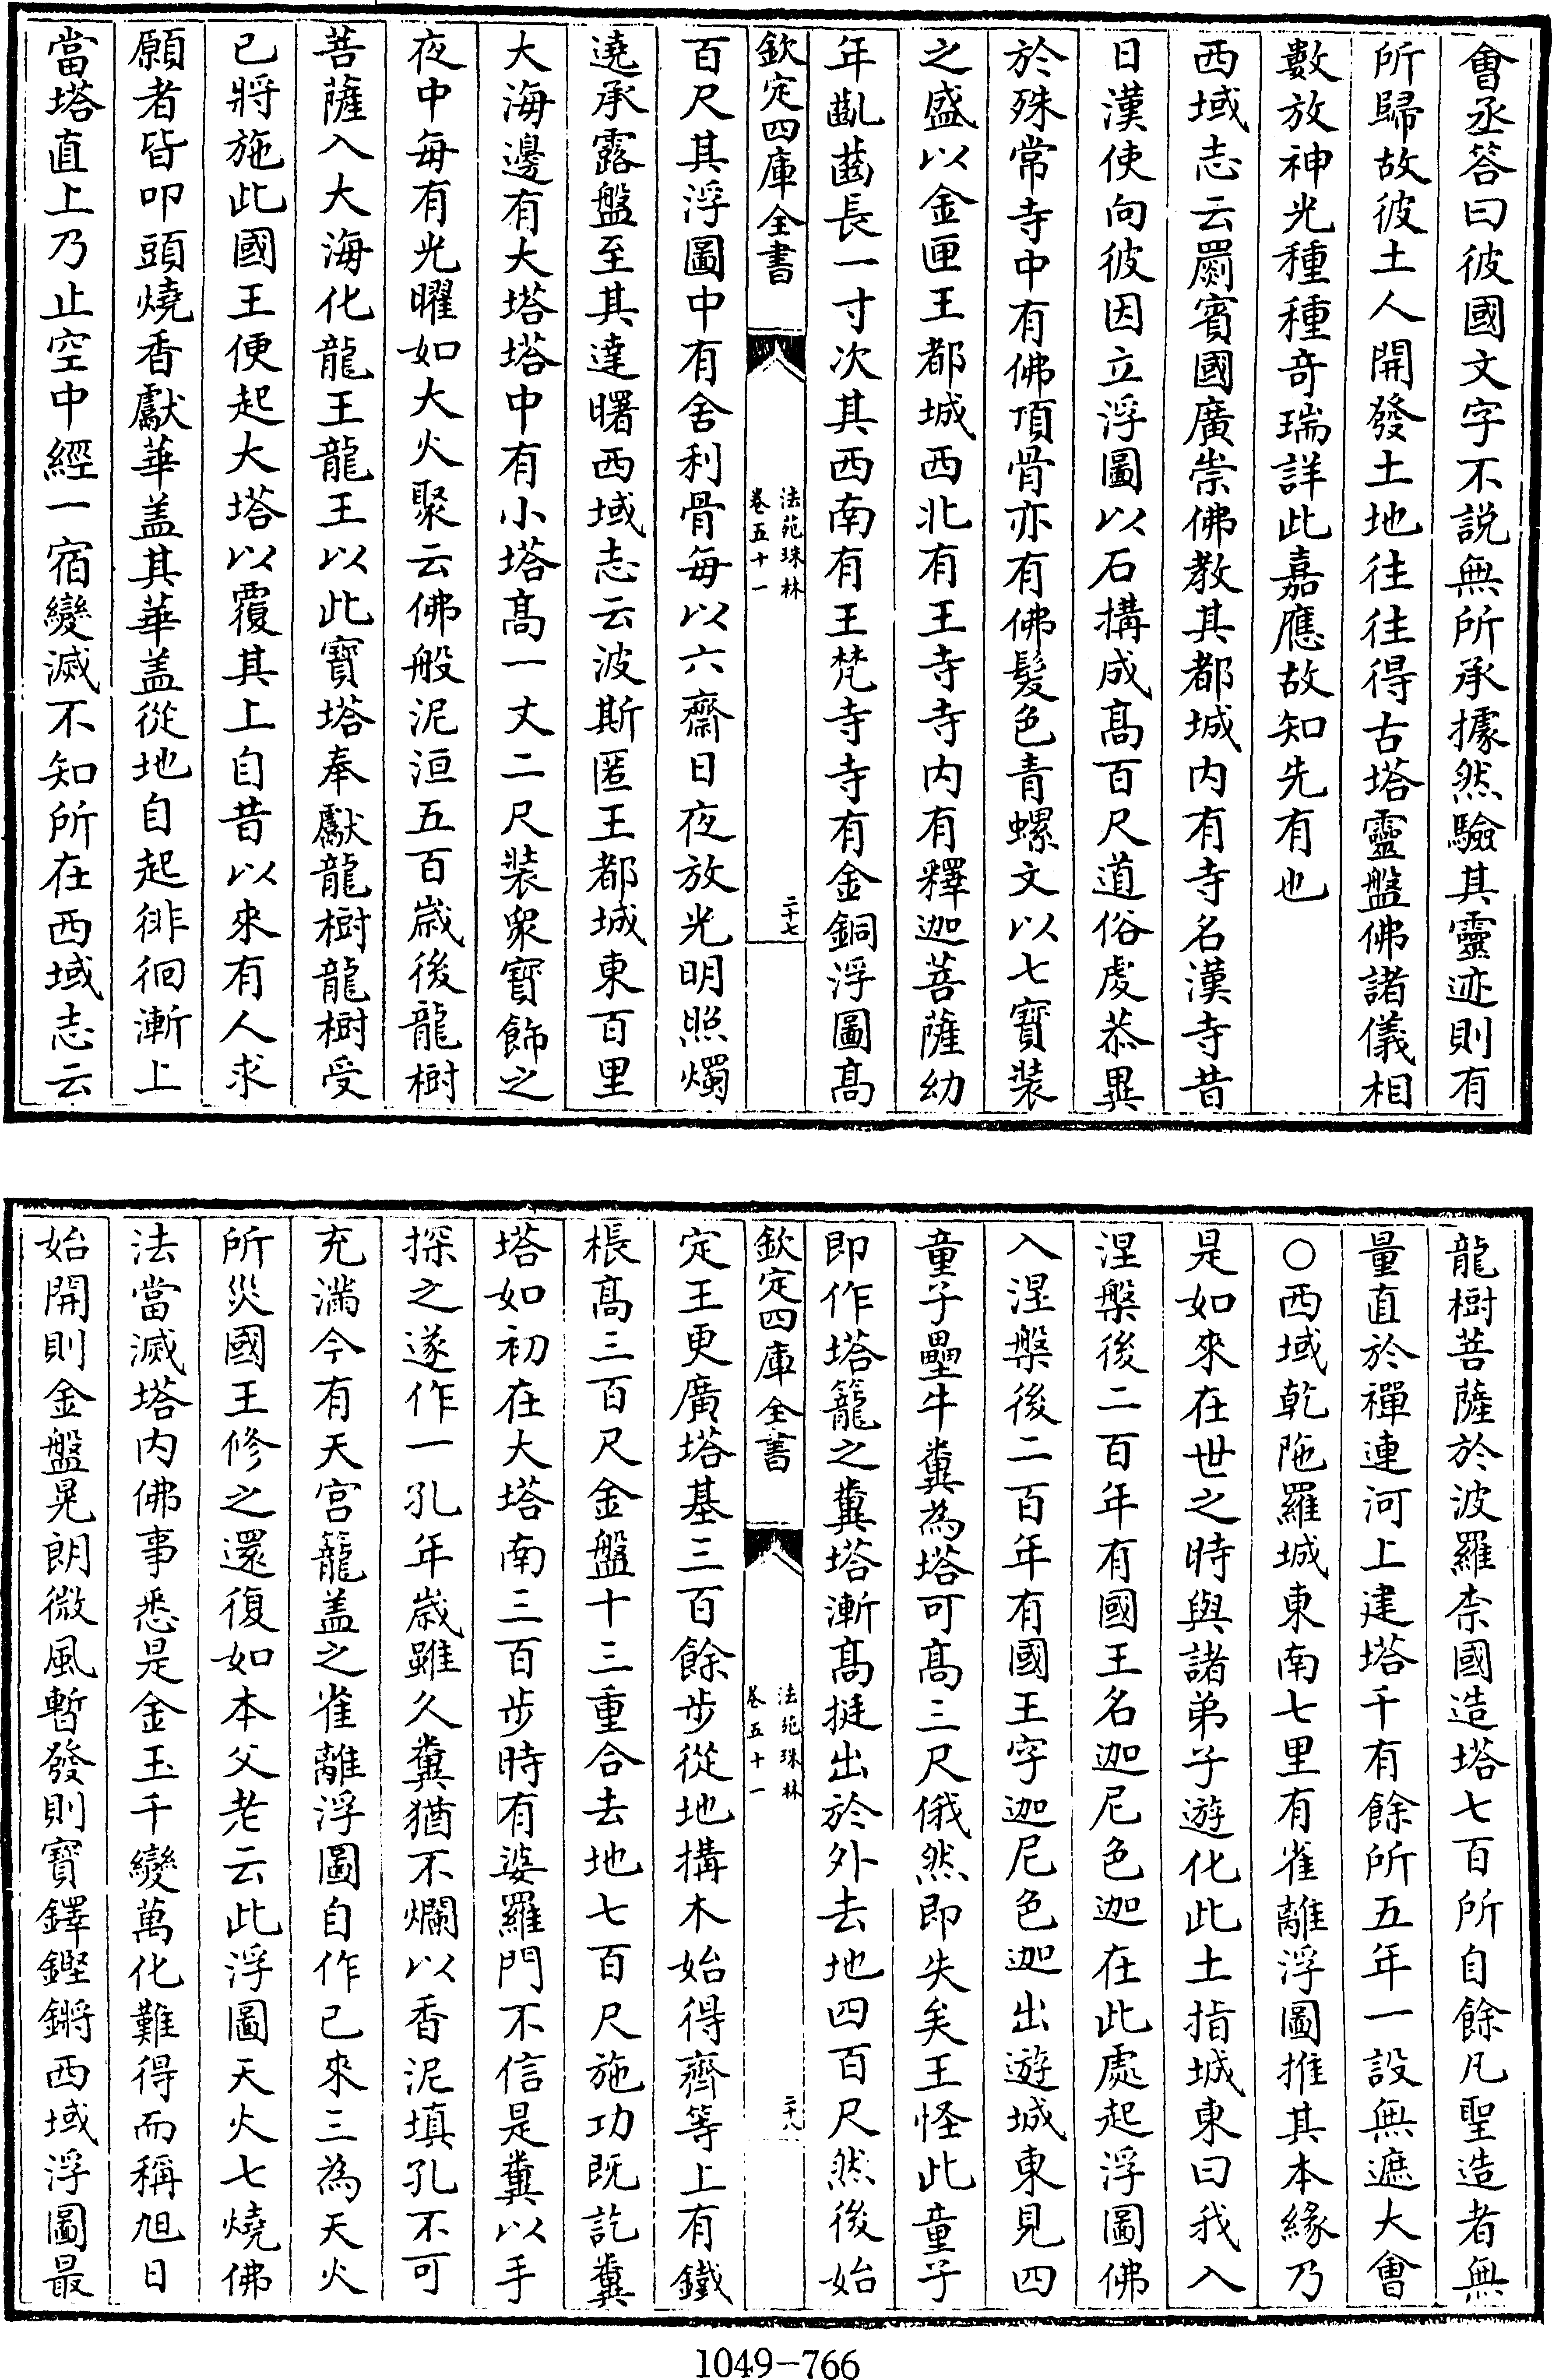 會丞答曰彼國文字不説無所承據然驗其靈迹則有
所歸故彼土人開發土地往往得古塔靈盤佛諸儀相
數放神光種種竒瑞詳此嘉應故知先有也
西域志云罽賓國廣崇佛教其都城内有寺名漢寺昔
日漢使向彼因立浮圖以石搆成髙百尺道俗虔恭異
於殊常寺中有佛頂骨亦有佛髮色青螺文以七寳裝
之盛以金匣王都城西北有王寺寺内有釋迦菩薩幼
年齓齒長一寸次其西南有王梵寺寺有金銅浮圖髙
欽定四庫全書
法苑珠林
卷五十一
二十七
百尺其浮圖中有舍利骨每以六齋日夜放光明照燭
遶承露盤至其達曙西域志云波斯匿王都城東百里
大海邊有大塔塔中有小塔髙一丈二尺裝衆寳飾之
夜中每有光曜如大火聚云佛般泥洹五百嵗後龍樹
菩薩入大海化龍王龍王以此寳塔奉獻龍樹龍樹受
已將施此國王便起大塔以覆其上自昔以來有人求
願者皆叩頭燒香獻華盖其華盖從地自起徘徊漸上
當塔直上乃止空中經一宿變滅不知所在西域志云
龍樹菩薩於波羅柰國造塔七百所自餘凡聖造者無
量直於禪連河上建塔千有餘所五年一設無遮大會
○西域乾陁羅城東南七里有雀離浮圖推其本緣乃
是如來在世之時與諸弟子遊化此土指城東曰我入
涅槃後二百年有國王名迦尼色迦在此處起浮圖佛
入涅槃後二百年有國王字迦尼色迦出遊城東見四
童子壘牛糞為塔可髙三尺俄然即失矣王怪此童子
即作塔籠之糞塔漸髙挺出於外去地四百尺然後始
欽定四庫全書
法苑珠林
卷五十一
二十八
定王更廣塔基三百餘步從地搆木始得齊等上有鐵
棖髙三百尺金盤十三重合去地七百尺施功既訖糞
塔如初在大塔南三百步時有婆羅門不信是糞以手
探之遂作一孔年嵗雖久糞猶不爛以香泥填孔不可
充滿今有天宫籠盖之雀離浮圖自作已來三為天火
所災國王修之還復如本父老云此浮圖天火七燒佛
法當滅塔内佛事悉是金玉千變萬化難得而稱旭日
始開則金盤晃朗微風暫發則寳鐸鏗鏘西域浮圖最
1049-766